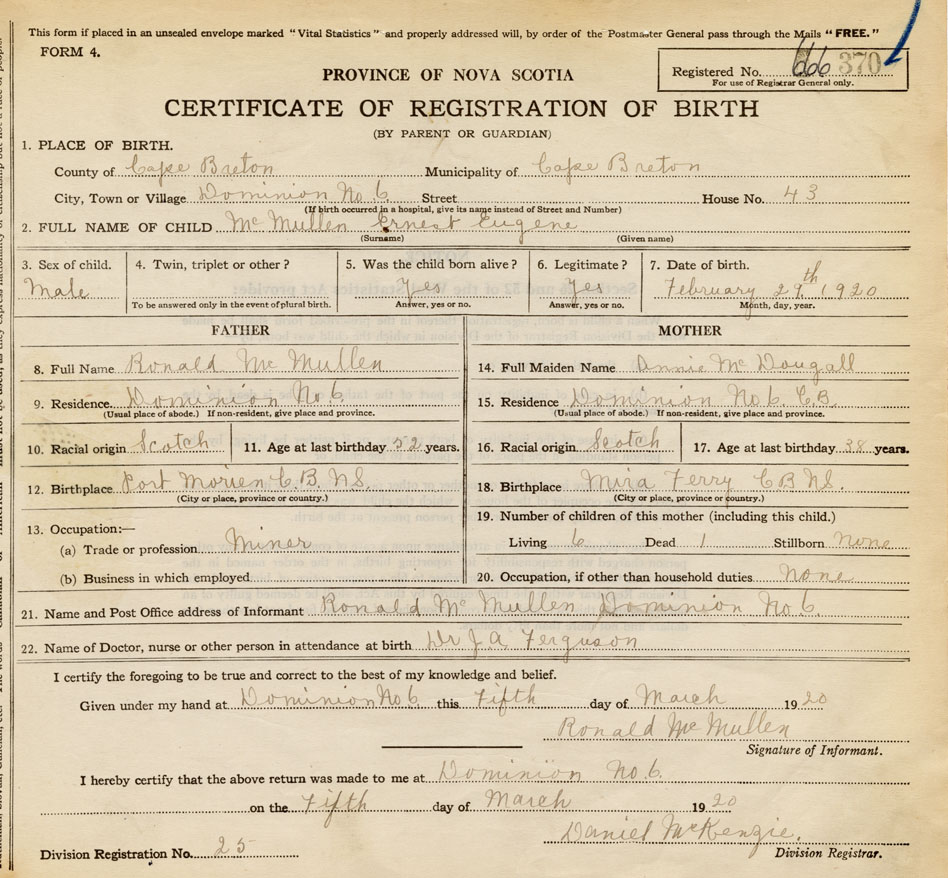 This form if placed in an unsealed envelope marked "Vital Statistics" and properly addressed will, by order of the Postmaster General pass through the Mails "FREE."
FORM 4.
Registered No. 666 370
For use of Registrar General only.
PROVINCE OF NOVA SCOTIA
CERTIFICATE OF REGISTRATION OF BIRTH
(BY PARENT OR GUARDIAN)
1. PLACE OF BIRTH.
County of Cape Breton Municipality of Cape Breton
City, Town or Village Dominion No 6 Street House No. 43
(If birth occurred in a hospital, give its name instead of Street and Number)
2. FULL NAME OF CHILD McMullen Ernest Eugene
(Surname) (Given name)
3. Sex of child. 4. Twin, triplet or other? 5. Was the child born alive? 6. Legitimate? 7. Date of birth.
Male yes yes February 29th 1920
To be answered only in the event of plural birth. Answer, yes or no. Answer, yes or no. Month, day, year.
FATHER MOTHER
8. Full Name Ronald McMullen 14. Full Maiden Name Annie McDougall
9. Residence. Dominion No 6 15. Residence Dominion No. 6. C.B.
(Usual place of abode.) If non-resident, give place and province. (Usual place of abode.) If non-resident, give place and province.
10. Racial origin Scotch 11. Age at last birthday 52 years. 16. Racial origin Scotch 17. Age at last birthday 38 years.
12. Birthplace Port Morien C.B. N.S. 18. Birthplace Mira Ferry C B N.S.
(City or place, province or country.) (City or place, province or country.)
13. Occupation:— 19. Number of children of this mother (including this child.)
(a) Trade or profession Miner Living 6 Dead 1 Stillborn None
(b) Business in which employed 20. Occupation, if other than household duties. None
21. Name and Post Office address of Informant Ronald McMullen Dominion No 6.
22. Name of Doctor, nurse or other person in attendance at birth Dr J. A. Ferguson
I certify the foregoing to be true and correct to the best of my knowledge and belief.
Given under my hand at Dominion No 6. this Fifth day of March 1920
Ronald McMullen
Signature of Informant.
I hereby certify that the above return was made to me at Dominion No. 6.
on the Fifth day of March 1920
Daniel McKenzie.
Division Registration No. 25 Division Registrar.